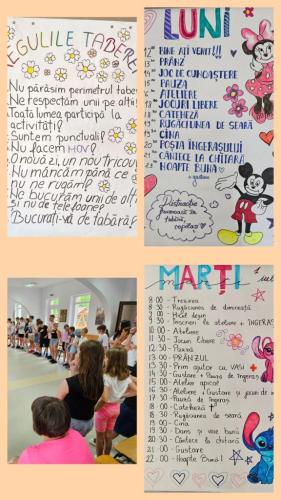 REGULILE TABEREI
Nu părăsim perimetrul taberei
Ne respectăm unii pe alții
Toată lumea participă la
activități!
Suntem punctuali?
Nu facem MOV?
O nouă zi, un nou tricou
Nu mâncăm până ce
nu ne rugăm?
Ne bucurăm unii de alții
și nu de telefoane?
Bucurați-vă de tabără?
LUNI
12 BINE AȚI VENIT!!!
13 PRÂNZ
14 JOC DE CUNOAȘTERE
PAUZĂ
ATELIERE
JOCURI LIBERE
CATEHEZĂ
RUGĂCIUNEA DE SEARĂ
CINA
POȘTA ÎNGERAȘULUI
CÂNTECE LA CHITARĂ
HOAPTE BUNĂ
+ gustare
Distracție
frumoasă în
tabără,
copilași
MARȚI
8 00 - Trezirea
Rugăciunea de dimineață
Micul dejun
Înscrieri la ateliere + ÎNGERAȘ
10 - Ateliere
11 - Jocuri libere
12 - Pauză
13 - PRÂNZUL
- Prim ajutor cu VALI
- Gustare + Pauza de îngeraș
15 - Atelier apicol
16 - Ateliere + Gustare și jocuri de
17 - Pauză de îngeraș
18 - Cateheză
18 - Rugăciunea de seară
19 - Cina
19 - Dans și voie bună
20 - Cântece la chitară
21 - Gustare
22 00 - Hoapte Bună!